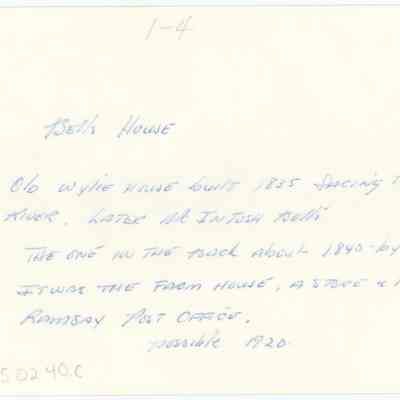 1-4
Bell's House
Old Wylie House built 1835 facing
River. Later McIntosh Bell's
The one in the back about 1840-by
It was the farm house, a store &
Ramsay Post Office.
possible 1920
50240.c